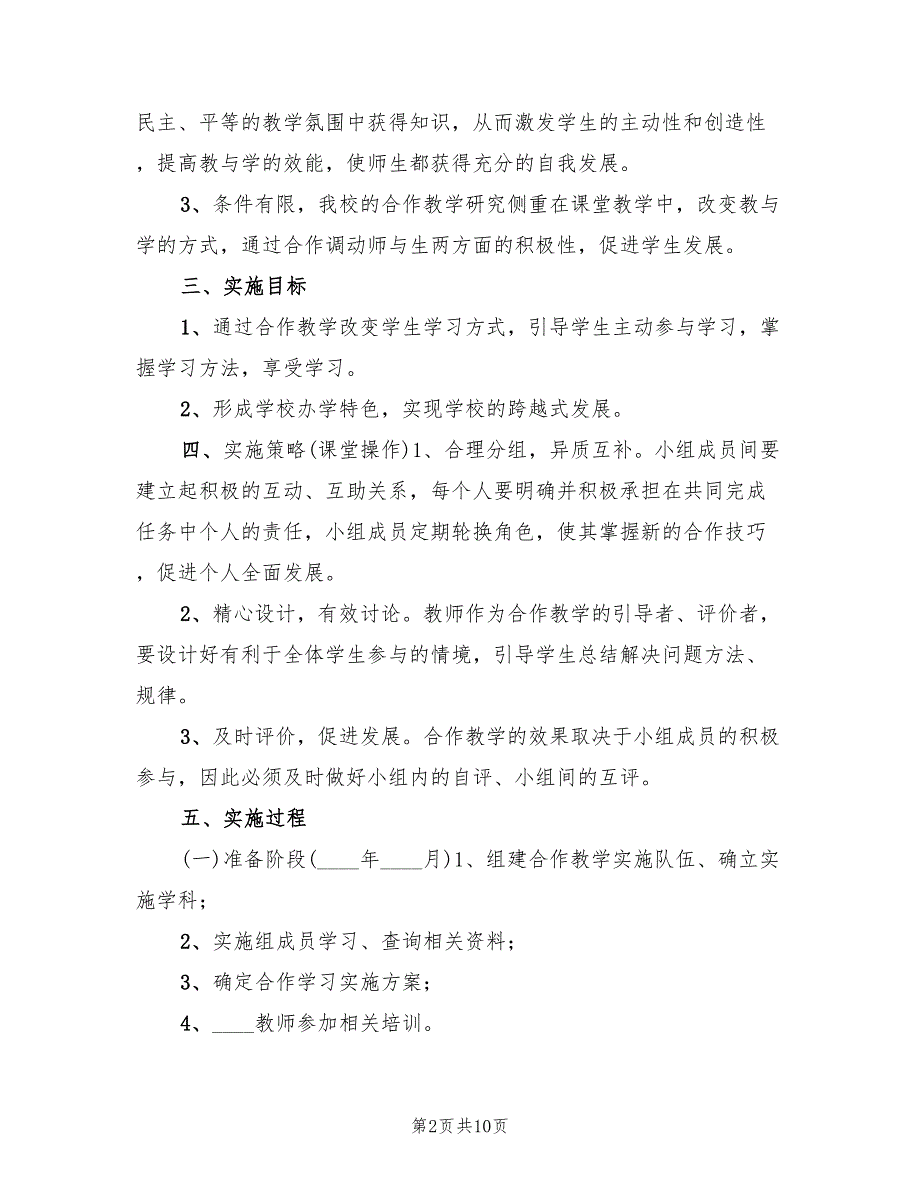 民主、平等的教学氛围中获得知识，从而激发学生的主动性和创造性
，提高教与学的效能，使师生都获得充分的自我发展。
3、条件有限，我校的合作教学研究侧重在课堂教学中，改变教与
学的方式，通过合作调动师与生两方面的积极性，促进学生发展。
三、实施目标
1、通过合作教学改变学生学习方式，引导学生主动参与学习，掌
握学习方法，享受学习。
2、形成学校办学特色，实现学校的跨越式发展。
四、实施策略(课堂操作)1、合理分组，异质互补。小组成员间要
建立起积极的互动、互助关系，每个人要明确并积极承担在共同完成
任务中个人的责任，小组成员定期轮换角色，使其掌握新的合作技巧
，促进个人全面发展。
2、精心设计，有效讨论。教师作为合作教学的引导者、评价者，
要设计好有利于全体学生参与的情境，引导学生总结解决问题方法、
规律。
3、及时评价，促进发展。合作教学的效果取决于小组成员的积极
参与，因此必须及时做好小组内的自评、小组间的互评。
五、实施过程
(一)准备阶段(____年____月)1、组建合作教学实施队伍、确立实
施学科；
2、实施组成员学习、查询相关资料；
3、确定合作学习实施方案；
4、____教师参加相关培训。
第2页共10页